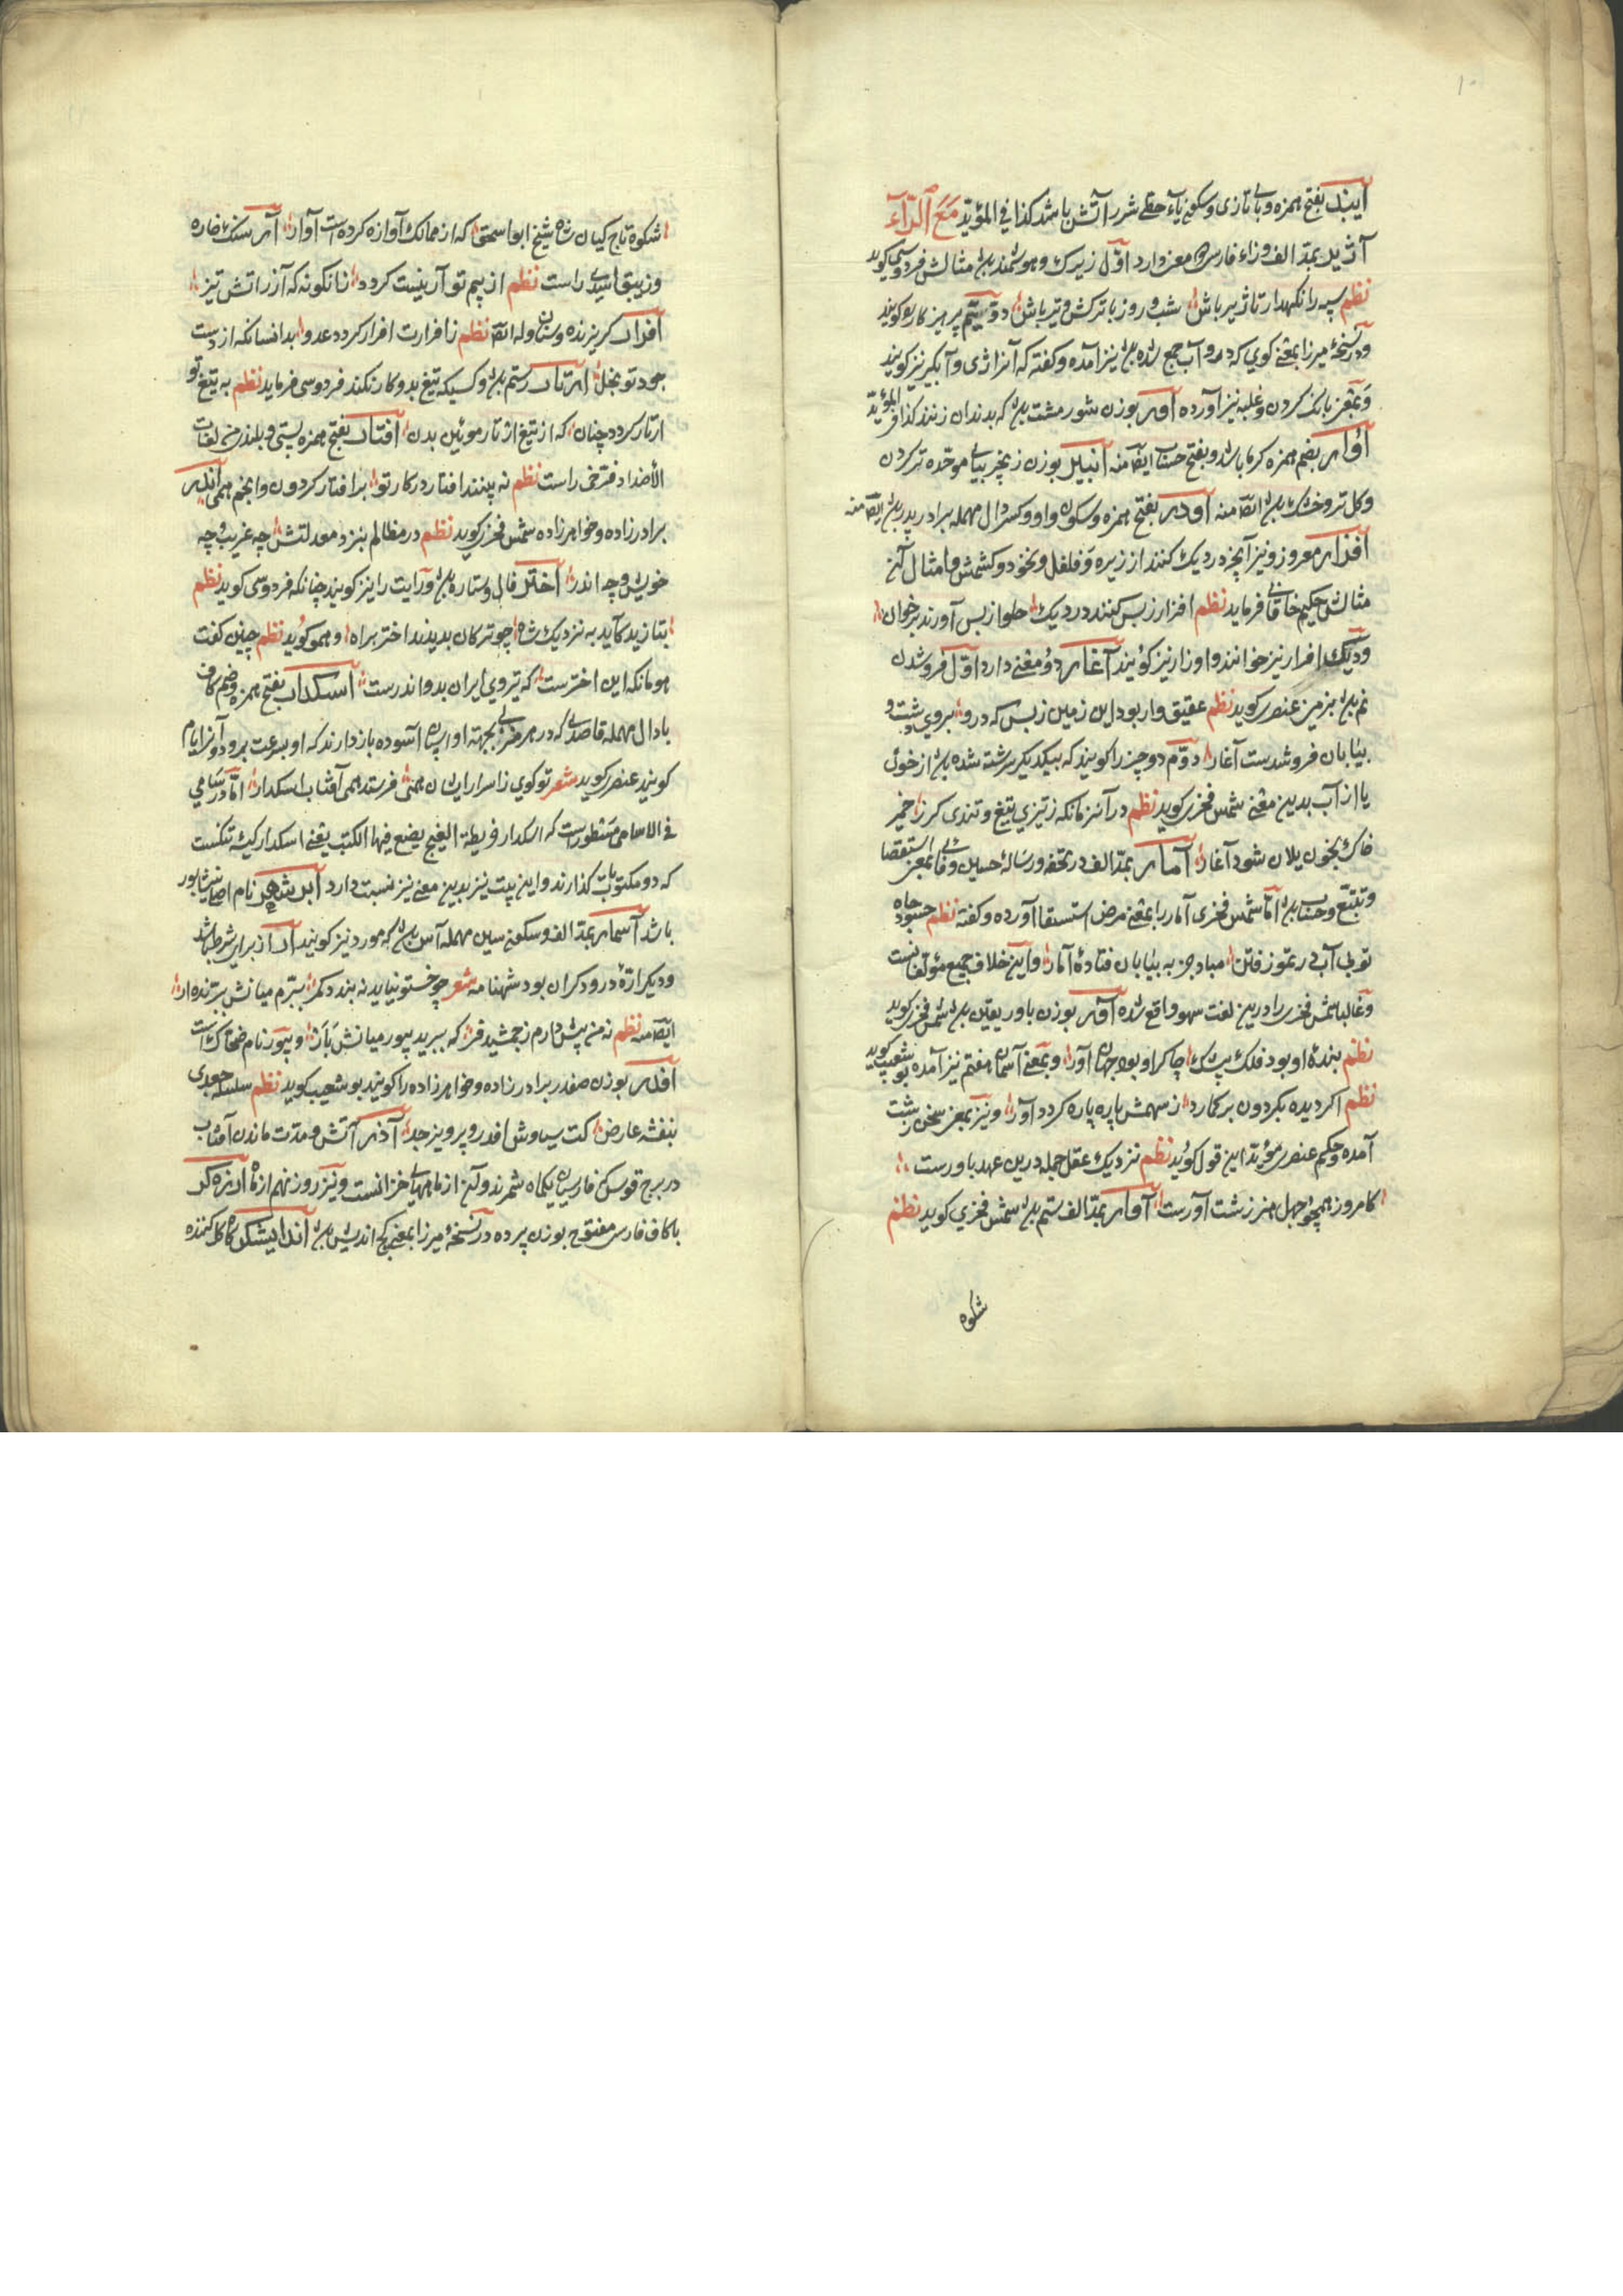 ۱۰
آیبد بفتح همزه وبای تازی وسکون یاء حطی شرر آتش باشد کذا فی المؤید مَعَ الرّآء
آژیر بمد الف وزاء فارسی دو معنی دارد اوّل زیرک وهوشمند باشد مثالش فردوسی کوید
نظم سپه را نکهدار تا ژیر باش شب و روز با ترکش و تیر باش دوّیم پرهیز کار بو کویند
ودر نسخهٔ میرزا بمعنی کوی که درو آب جمع شده باشد نیز آمده وکفته که آنرا ژی و آبکیر نیز کویند
وبمعنی بانک کردن وغلبه نیز آورده آور بوزن شور مشت باشد که بدندان زنند کذا فی المؤید
آوار بضم همزه کرما باشد وبفتح حساب ایضاً منه انبیر بوزن زنجیر بیای موحّده تر کردن
وکل تر وخشک باشد ایضاً منه اودر بفتح همزه وسکون واو وکسر دال مهمله برادر پدر باشد ایضاً منه
افزار معروف ونیز آنچه در دیک کنند از زیره و فلفل و نخود و کشمش وامثال آن
مثالش حکیم خاقانی فرماید نظم افزار ز پس کنند در دیک حلوا ز پس آورند بر خوان
ودیک افزار نیز خوانند و اوزار نیز کویند آغار دو معنی دارد اوّل فروشدن
نم باشد بزمین عنصری کوید نظم عقیق وار بود این زمین ز بس که درو بروی دشت و
بیابان فروشدست آغار دوّم دو چیز را کویند که بیکدیکر سرشته شده باشد از خون
یا از آب بدین معنی شمس فخری کوید نظم در آن زمانکه ز تیزی تیغ و تندی کرز خمیر
خاک بخون یلان شود آغار آمار بمد الف در تحفه و رسالهٔ حسین وفائی بمعنی استقصا
وتتبع وحساب باشد امّا شمس فخری آمار را بمعنی مرض استسقا آورده وکفته نظم حسود جاه
تو بی آب در تموز فتن مباد جز به بیابان فتادهٔ آمار واین خلاف جمیع مؤلفانست
وغالبا شمس فخری را درین لغت سهو واقع شده آور بوزن باور یقین باشد شمس فخری کوید
نظم بندهٔ او بود فلک بیشک چاکر او بود جهان آور وبمعنی آسمان هفتم نیز آمده بوشعیب کوید
نظم اکر دیده بکردون بر کمارد ز سهمش پاره پاره کردد آور ونیز بمعنی سخن زشت
آمده وحکیم عنصری مؤید این قول کوید نظم نزدیک عقل جمله درین عهد باورست
کامروز همچو جهل هنر زشت آورست آوار بمد الف ستم باشد شمس فخری کوید نظم
شکوه
شکوه تاج کیان شاه شیخ ابو اسحق که از ممالک آوازه کرده است آوار آر سنک خاره
وزیبق اسدی راست نظم از بیم تو آر نیست کردد زانکونه که آزر آتش تیز
افرار کریزنده وستان وله ایضاً نظم زافرارت افرار کردد عدو بدانسانکه از دست
جود تو بخل ارتار رستم باشد وکسیکه تیغ بدو کار نکند فردوسی فرماید نظم به تیغ تو
ارتار کردد چنان که از تیغ ارتار موئین بدن افتار بفتح همزه پستی وبلندی من لغات
الأضداد فرخی راست نظم نه بینند افتار در کار تو بر افتار کردون وانجم همی اندر
برادرزاده وخواهرزاده شمس فخری کوید نظم در مظالم بنزد معدلتش چه غریب وچه
خویش وچه اندر اختر فال وستاره باشد و رایت را نیز کویند چنانکه فردوسی کوید نظم
بتازید کاید به نزدیک شاه چو ترکان بدیدند اختر براه وهمو کوید نظم چنین کفت
هومانکه این اخترست که نیروی ایران بدو اندرست اسکدار بفتح همزه وضم کاف
با دال مهمله قاصدی که در هر منزلی بجهته او اسپان آسوده باز دارند که او بسرعت برود
کویند عنصری کوید شعر تو کوی ز اسرار ایشان همی فرستد همی آفتاب اسکدار امّا در سامی
فی الاسامی مسطورست که اسکدار فریطة الفیج یضع فیها الکتب یعنی اسکدار کیسهٔ پیکست
که دو مکتوبات کذارند واین بیت نیز بدین معنی نیز نسبت دارد ابر شهر نام اصلی نیشابور
باشد آسمار بمد الف وسکون سین مهمله آس باشد که مورد نیز کویند ار از برای شرط باشد
ودیکر ارّهٔ درودکران بود شهنامه شعر چو خستو نیاید نه بندد کمر ببرّم میانش ببرّنده ار
ایضاً منه نظم نه من بیش دارم ز جمشید فر که ببرید بیور میانش باَر وبیور نام ضحاک است
افدر بوزن صفدر برادرزاده وخواهرزاده را کویند بوشعیب کوید نظم سلسله جعدی
بنفشه عارض کت سیاوش افدر و پرویز جد آذر آتش ومدّت ماندن آفتاب
در برج قوس که فارسیان یکماه شمرند وآن از ماههای خزانست ونیز روز نهم از ماه ارنده کر
با کاف فارسی مفتوح بوزن پرده در نسخهٔ میرزا بمعنی کج اندیش باشد اندایشکر کاه کل کننده